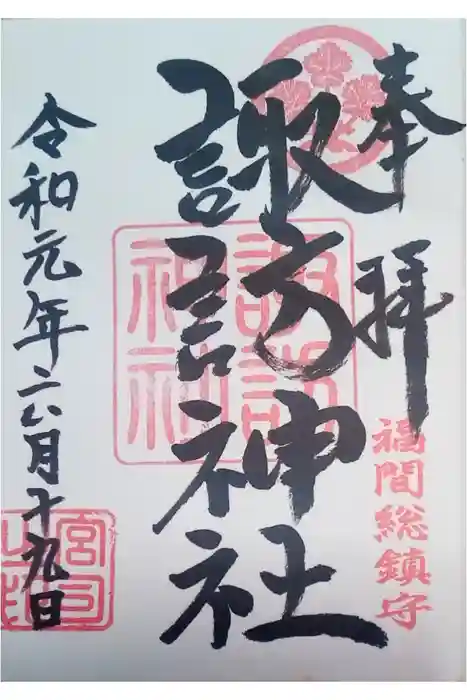 奉拝
福間総鎮守
諏訪神社
諏訪神社
令和元年六月十九日